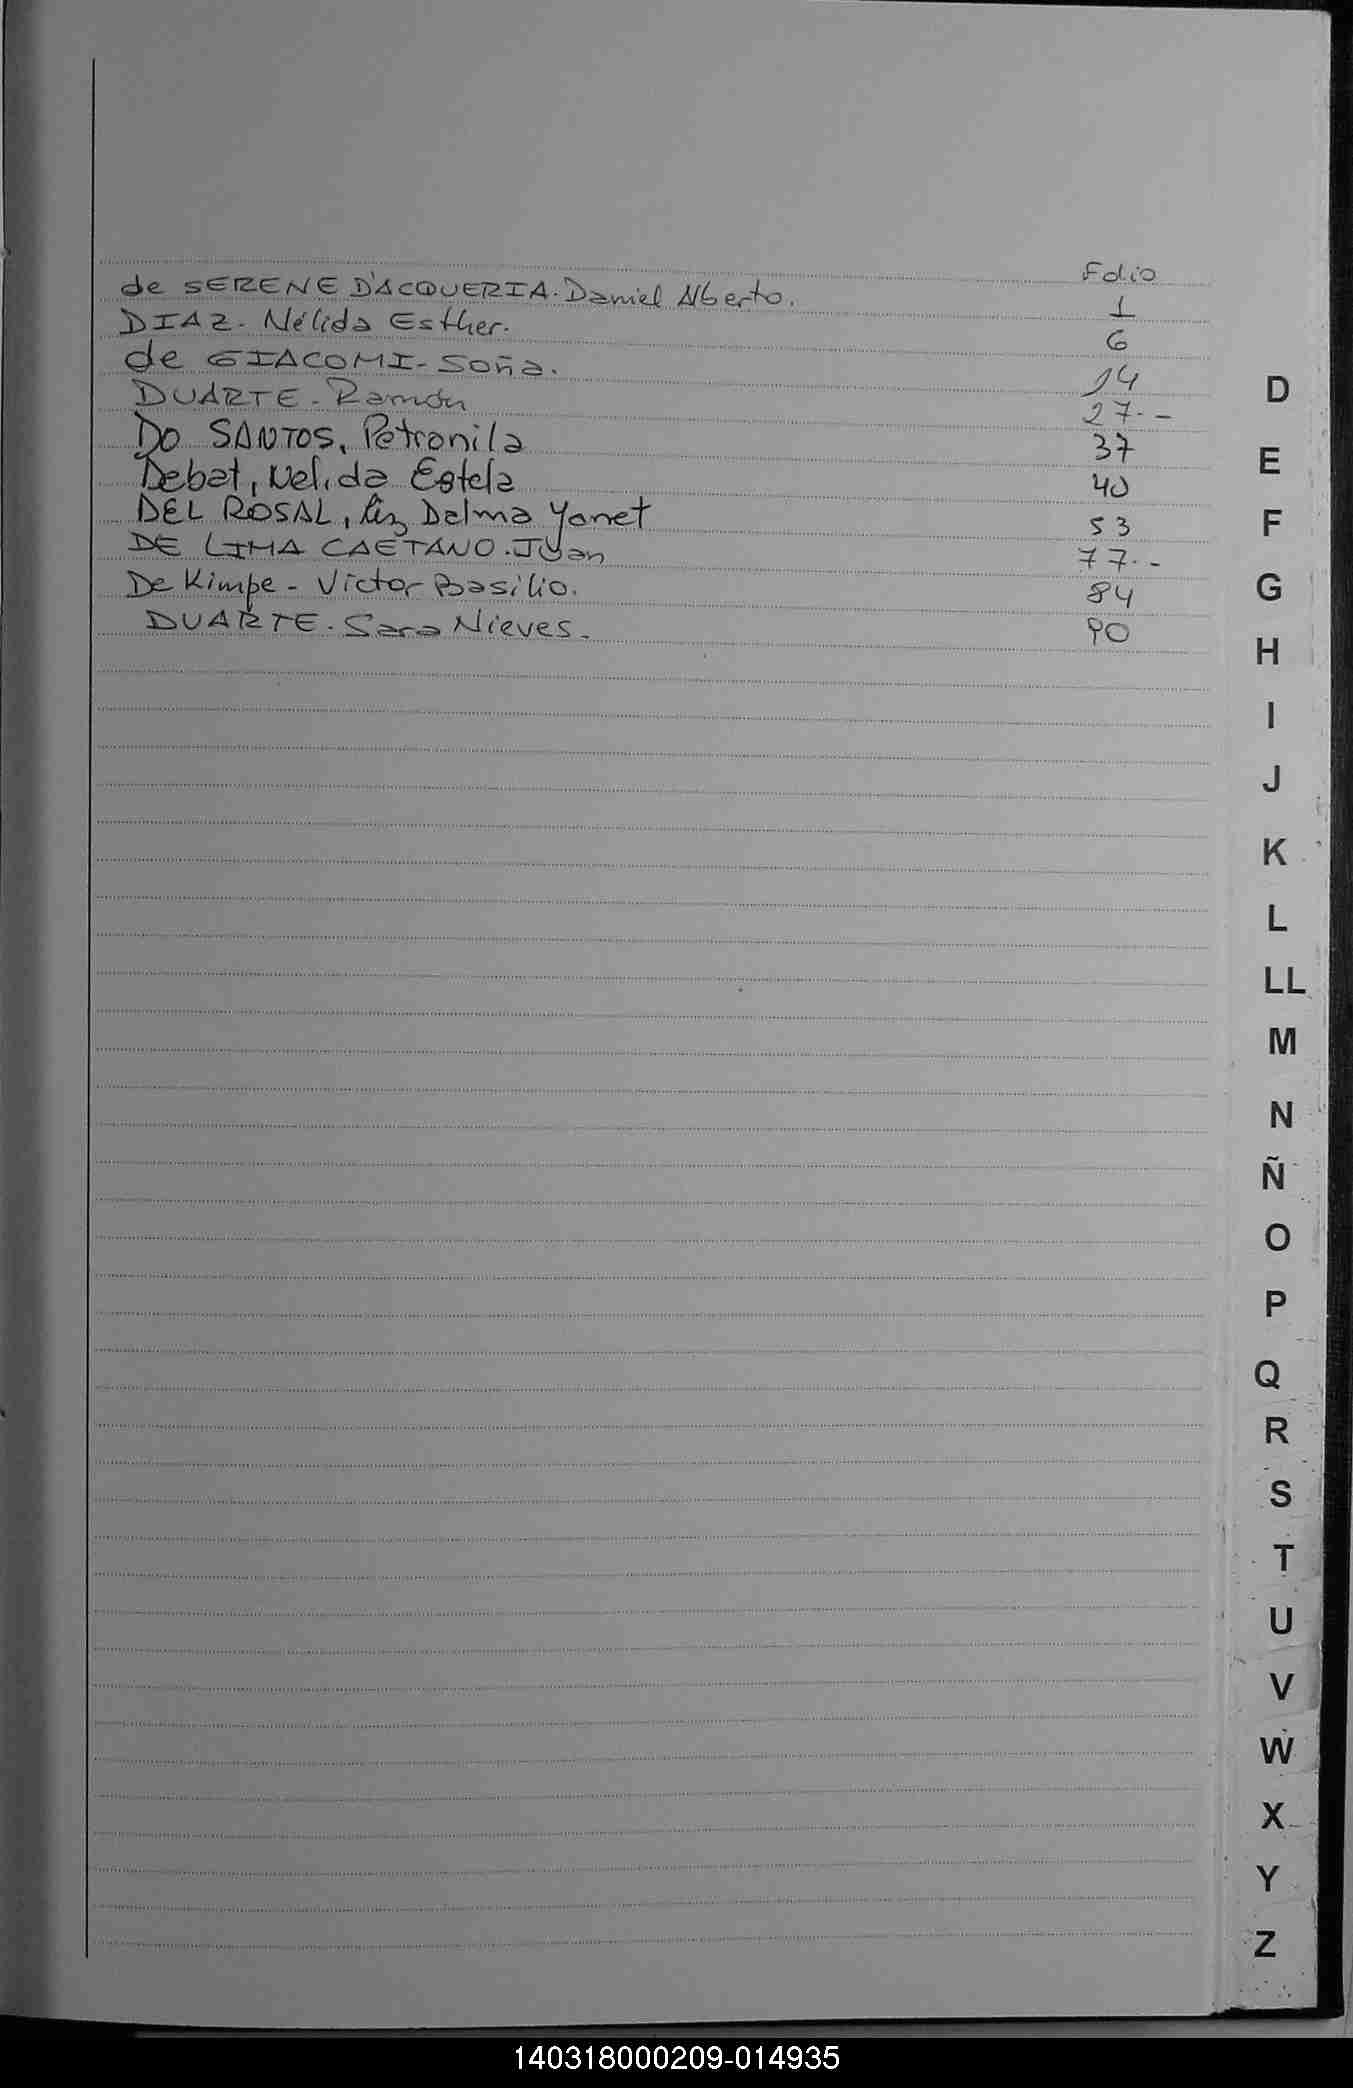 Folio
de SERENE D'ACQUERIA. Daniel Alberto. 1
DIAZ. Nélida Esther. 6
de GIACOMI - Soña. 14
DUARTE - Ramón 27.--
DO SANTOS, Petronila 37
Debat, Nelida Estela 40
DEL ROSAL, Liz Delma Yanet 53
DE LIMA CAETANO. Juan 77.--
De Kimpe - Victor Basilio. 84
DUARTE. Sara Nieves. 90
D
E
F
G
H
I
J
K
L
LL
M
N
Ñ
O
P
Q
R
S
T
U
V
W
X
Y
Z
140318000209-014935